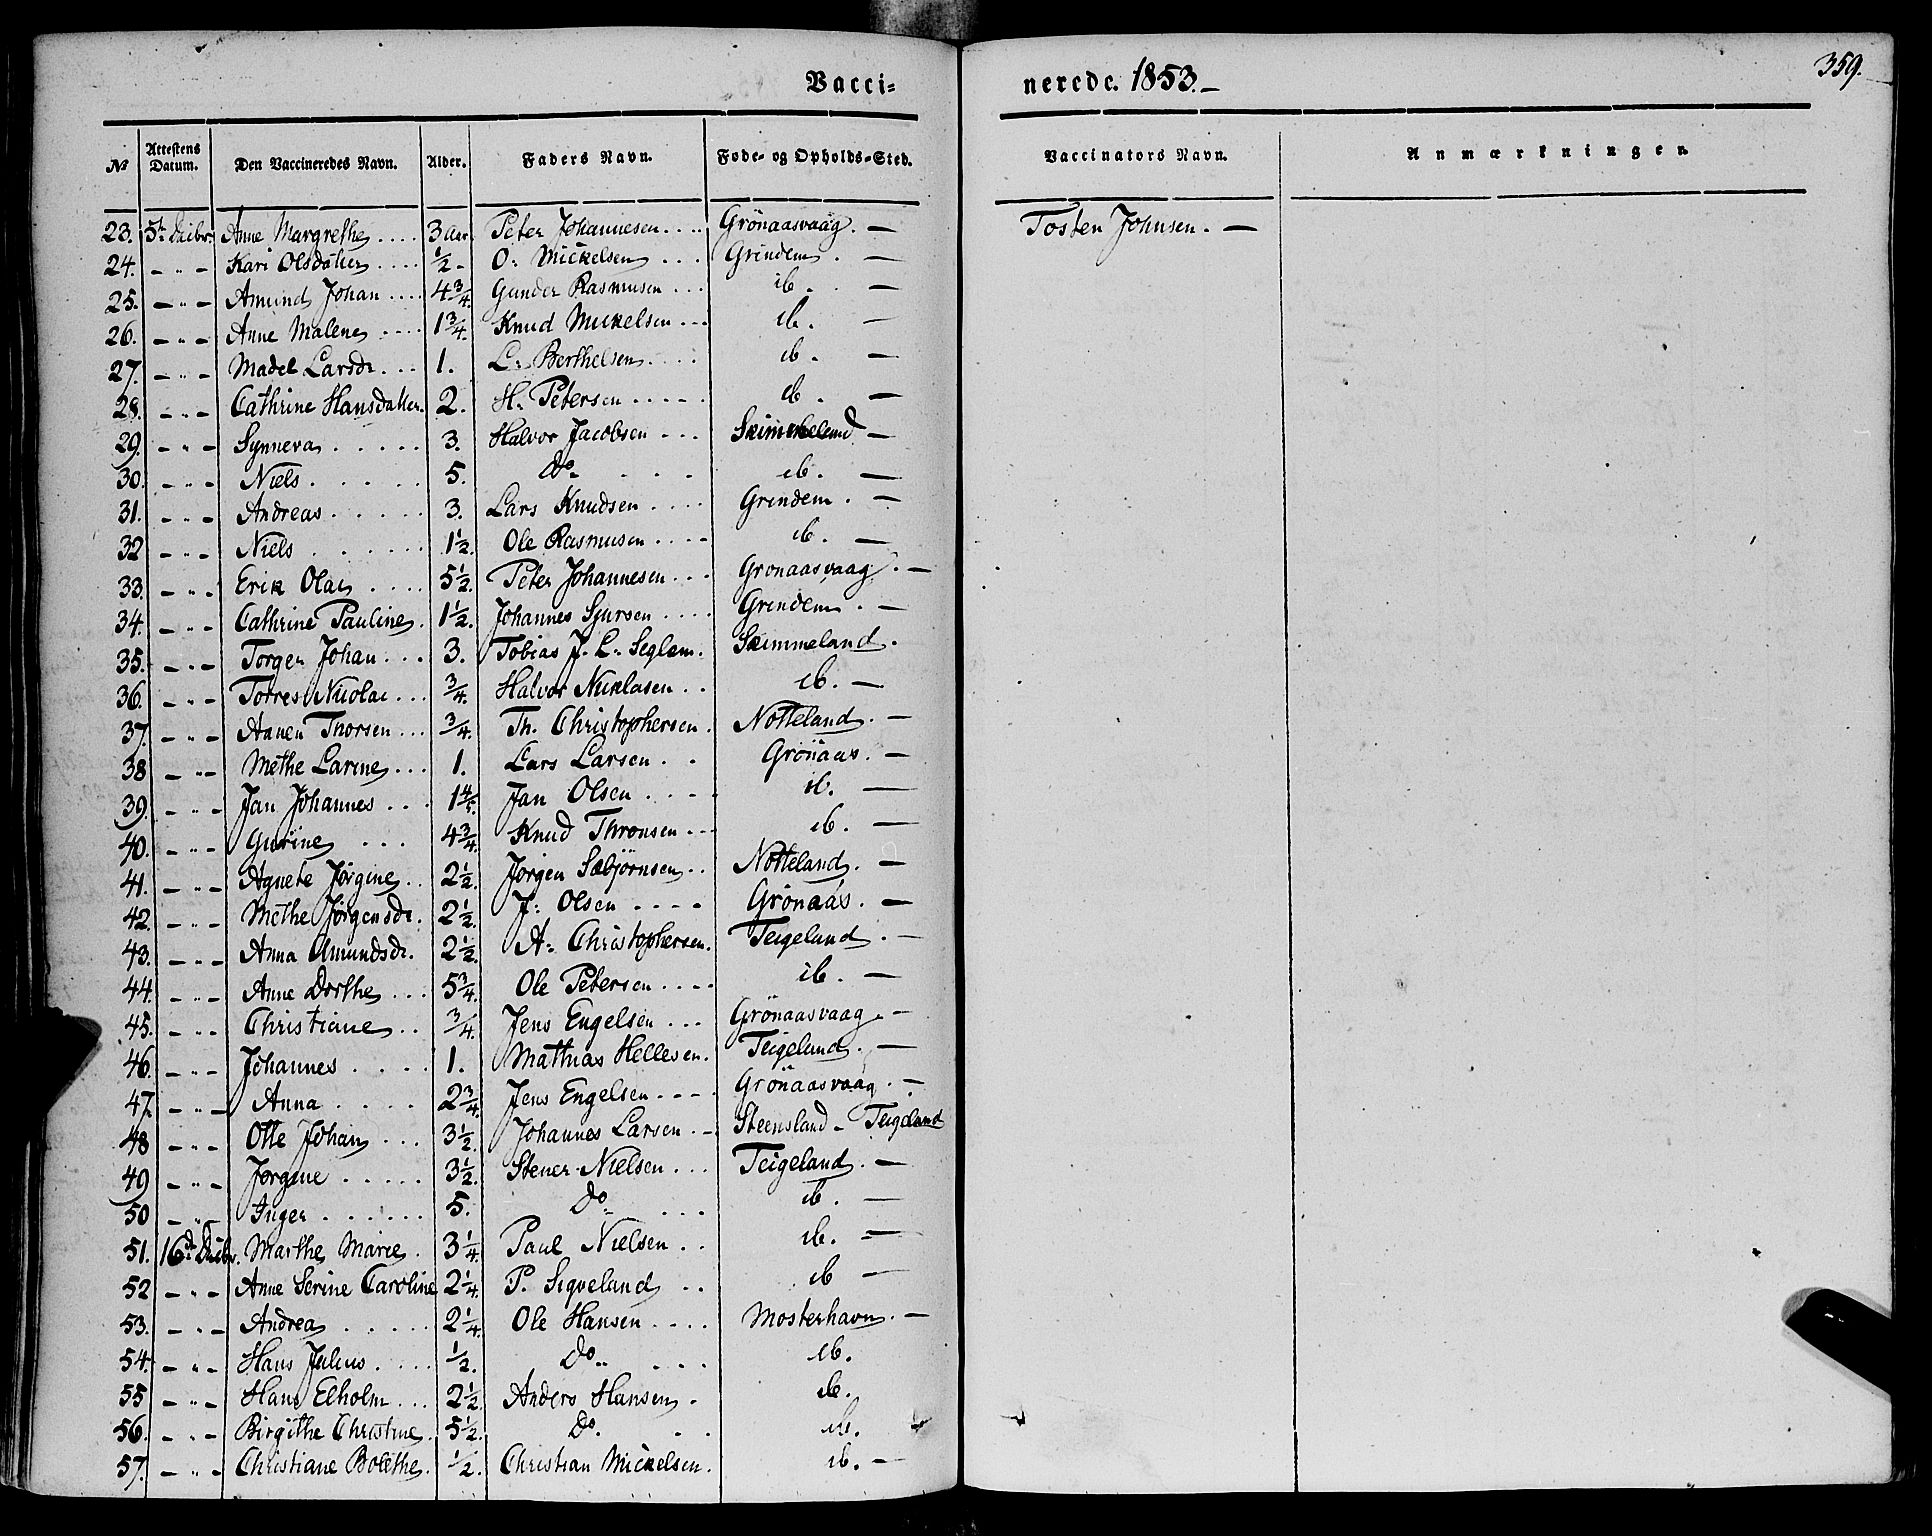 Vacci- nerede. 1853.— 359.
No | Attestens Datum. | Den Vaccineredes Navn. | Alder. | Faders Navn. | Føde- og Opholds-Sted. | Vaccinators Navn. | Anmærkninger.
23. 5t Dcibr Anne Margrethe .... 3 Aar. Peter Johannesen .... Grönaasvaag. — Tosten Johnsen. —
24. — " — Kari Olsdatter .... ½ - O: Mickelsen ... Grindem . —
25. — " — Amund Johan .... 4¾. Gunder Rasmusen ... ib. . —
26. — " — Anne Malene .... 1¾. Knud Mickelsen ... ib. —
27. — " — Madel Larsdr. ... 1. L: Berthelsen .... ib. —
28. — " — Cathrine Hansdatter. 2. H. Petersen ..... ib. —
29. — " — Synneva ..... 3. Halvor Jacobsen ... Skimmeland —
30. — " — Niels ..... 5. Do .... ib. —
31. — " — Andreas ..... 3. Lars Knudsen .... Grindem . —
32 — " — Niels ...... 1½. Ole Rasmusen .... ib. —
33. — " — Erik Olai .... 5½. Peter Johannesen ... Gronaasvaag. —
34. — " — Cathrine Pauline. 1½. Johannes Sjursen .... Grindem . —
35. — " — Torger Johan ... 3. Tobias J. L. Seglem. Skimmeland.
36. — " — Torres Nicolai ... ¾. Halvor Nicklasen .. ib. —
37. — " — Aanen Thorsen ... ¾. Th. Christophersen. Notteland. —
38 — " — Methe Larine ... 1. Lars Larsen . . Grönaas. —
39. — " — Jan Johannes ... 1⅘. Jan Olsen .... ib. —
40. — " — Gurine ... 4¾. Knud Thronsen ... ib. —
41. — " — Agnete Jørgine .. 2½. Jørgen Sæbjørnsen .. Notteland. —
42. — " — Methe Jørgensdr. 2½. J: Olsen .... Grönaas. —
43. — " — Anna Amundsdr. 2½. A: Christophersen. Teigeland . —
44. — " — Anne Dorthe ... 5¾. Ole Petersen .... ib. —
45. — " — Christiane .. ¾. Jens Engelsen ... Grönaasvaag. —
46. — " — Johannes .... 1. Mathias Hellesen. Teigeland. —
47. — " — Anna .... 2¾. Jens Engelsen .... Grönaasvaag. —
48 — " — Otte Johan ... 3½. Johannes Larsen .. Steensland - Teigeland
49 — " — Jørgine ..... 3½. Stener Nielsen ... Teigeland. —
50 — " — Inger ...... 5. Do ... ib. —
51. 16de Dcibr. Marthe Marie . 3¼. Paul Nielsen .. ib. —
52 — " — Anne Serine Caroline 2¼. P. Sigveland .. ib —
53. — " — Andrea ..... 2¼. Ole Hansen .... Mosterhavn. —
54. — " — Hans Julius .... ½. Do ... ib.
55 — " — Hans Elholm ... 2½. Anders Hansen . ib.
56. — " — Birgithe Christine. 5½. Do. . . ib.
57. — " — Christiane Bolethe. ½. Christian Mickelsen. ib. —